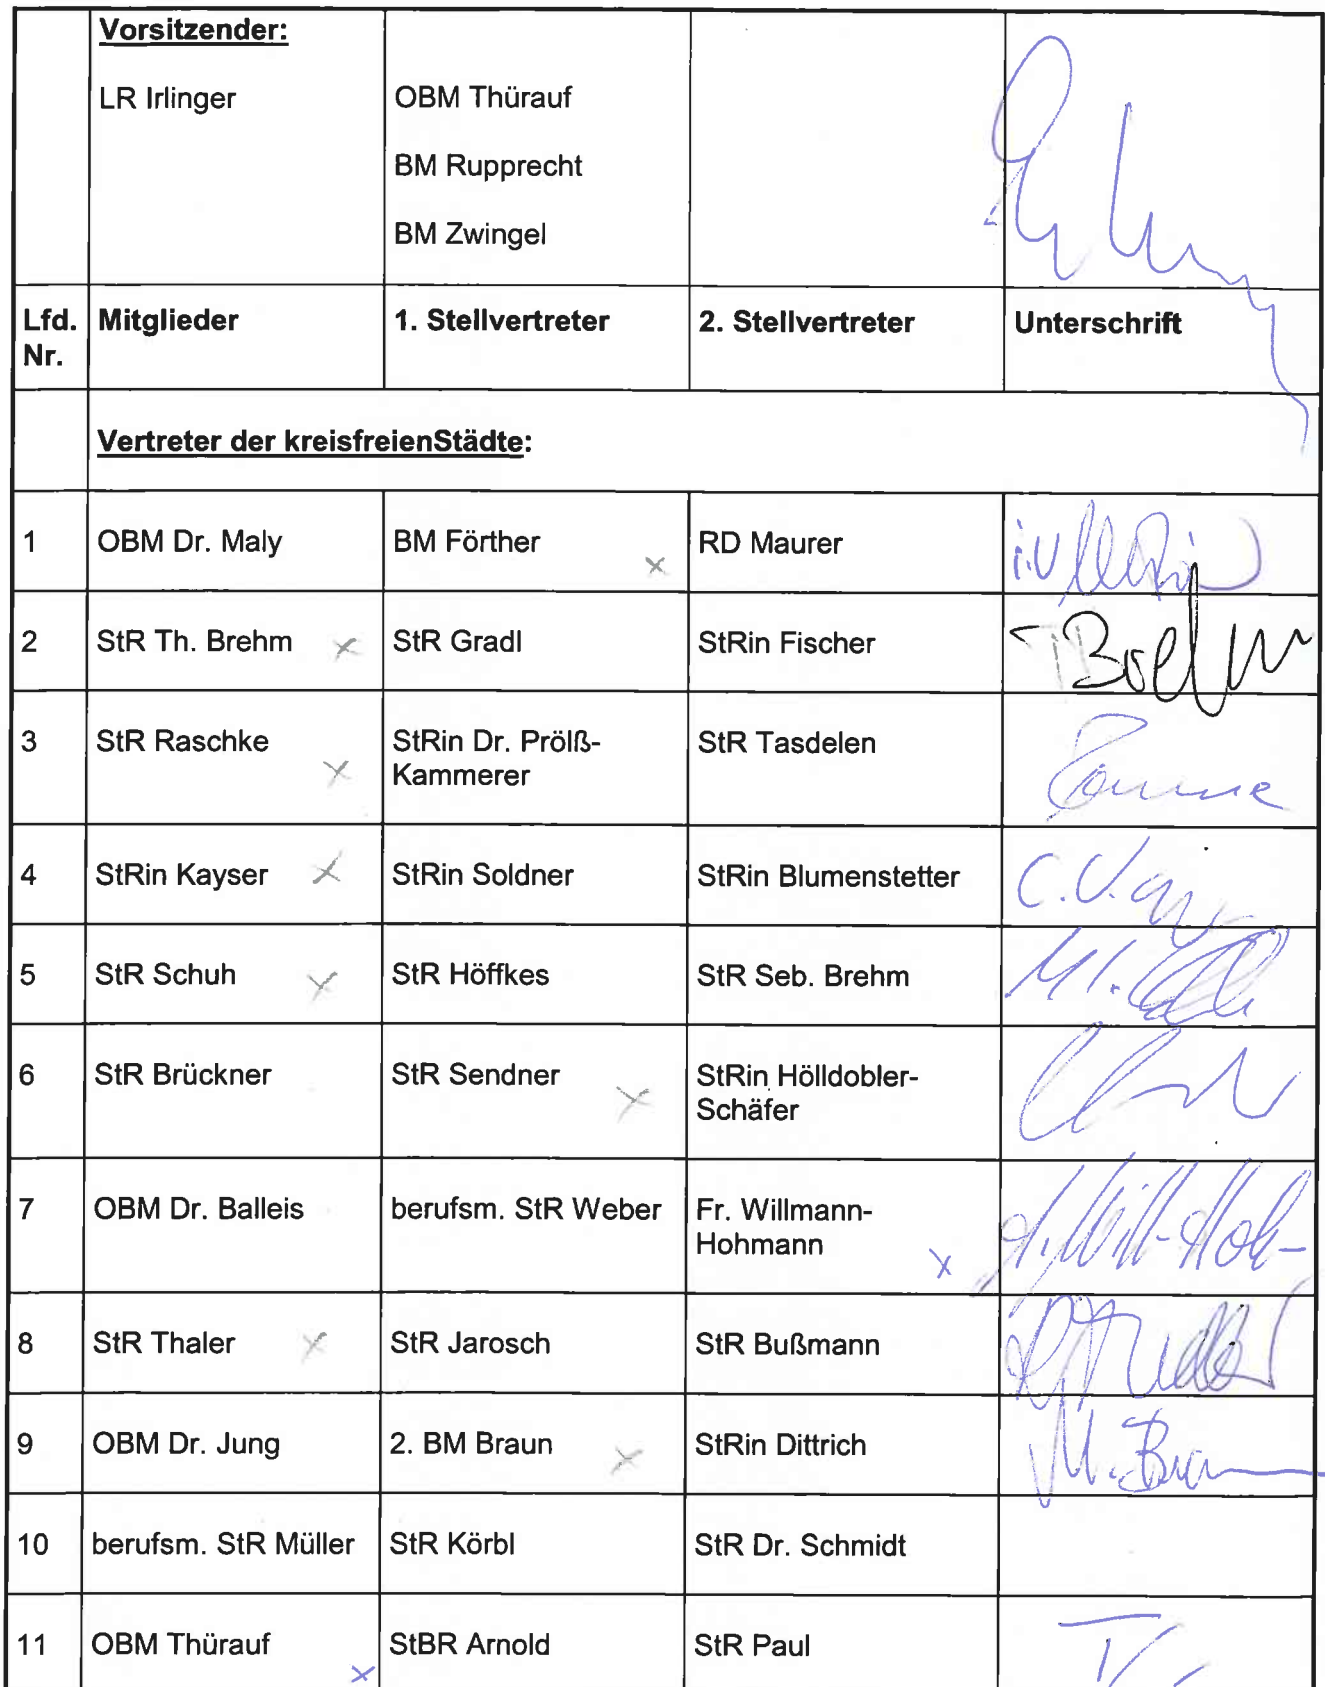 Vorsitzender:
LR Irlinger
OBM Thürauf
BM Rupprecht
BM Zwingel
Lfd. Nr. Mitglieder 1. Stellvertreter 2. Stellvertreter Unterschrift
Vertreter der kreisfreienStädte:
1 OBM Dr. Maly BM Förther x RD Maurer i.V
2 StR Th. Brehm x StR Gradl StRin Fischer T Brehm
3 StR Raschke x StRin Dr. Prölß-
Kammerer StR Tasdelen
4 StRin Kayser x StRin Soldner StRin Blumenstetter
5 StR Schuh x StR Höffkes StR Seb. Brehm
6 StR Brückner StR Sendner x StRin Hölldobler-
Schäfer
7 OBM Dr. Balleis berufsm. StR Weber Fr. Willmann-
Hohmann x
8 StR Thaler x StR Jarosch StR Bußmann
9 OBM Dr. Jung 2. BM Braun x StRin Dittrich M. Braun
10 berufsm. StR Müller StR Körbl StR Dr. Schmidt
11 OBM Thürauf x StBR Arnold StR Paul